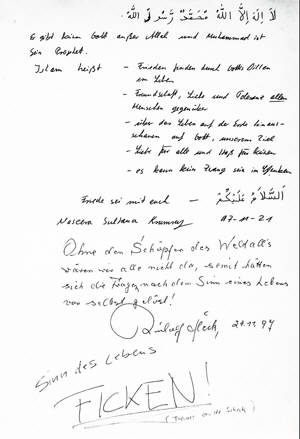 لَا إِلٰهَ إِلَّا اللّٰهُ مُحَمَّدٌ رَّسُولُ اللّٰهِ
Es gibt keinen Gott außer Allah und Muhammad ist
Sein Prophet.
Islam heißt – Frieden finden durch Gottes Willen
im Leben
– Freundschaft, Liebe und Toleranz allen
Menschen gegenüber
– über das Leben auf der Erde hinaus-
schauen auf Gott, unserem Ziel
– Liebe für alle und Haß für keinen
– es kann kein Zwang sein im Glauben
Friede sei mit euch – اَلسَّلَامُ عَلَيْكُمْ
Naseera Sultana
Ohne den Schöpfer des Weltall's
wären wir alle nicht da, somit hätten
sich die Fragen nach dem Sinn eines Lebens
von selbst gelöst!
27.11.97
Sinn des Lebens
FICKEN!